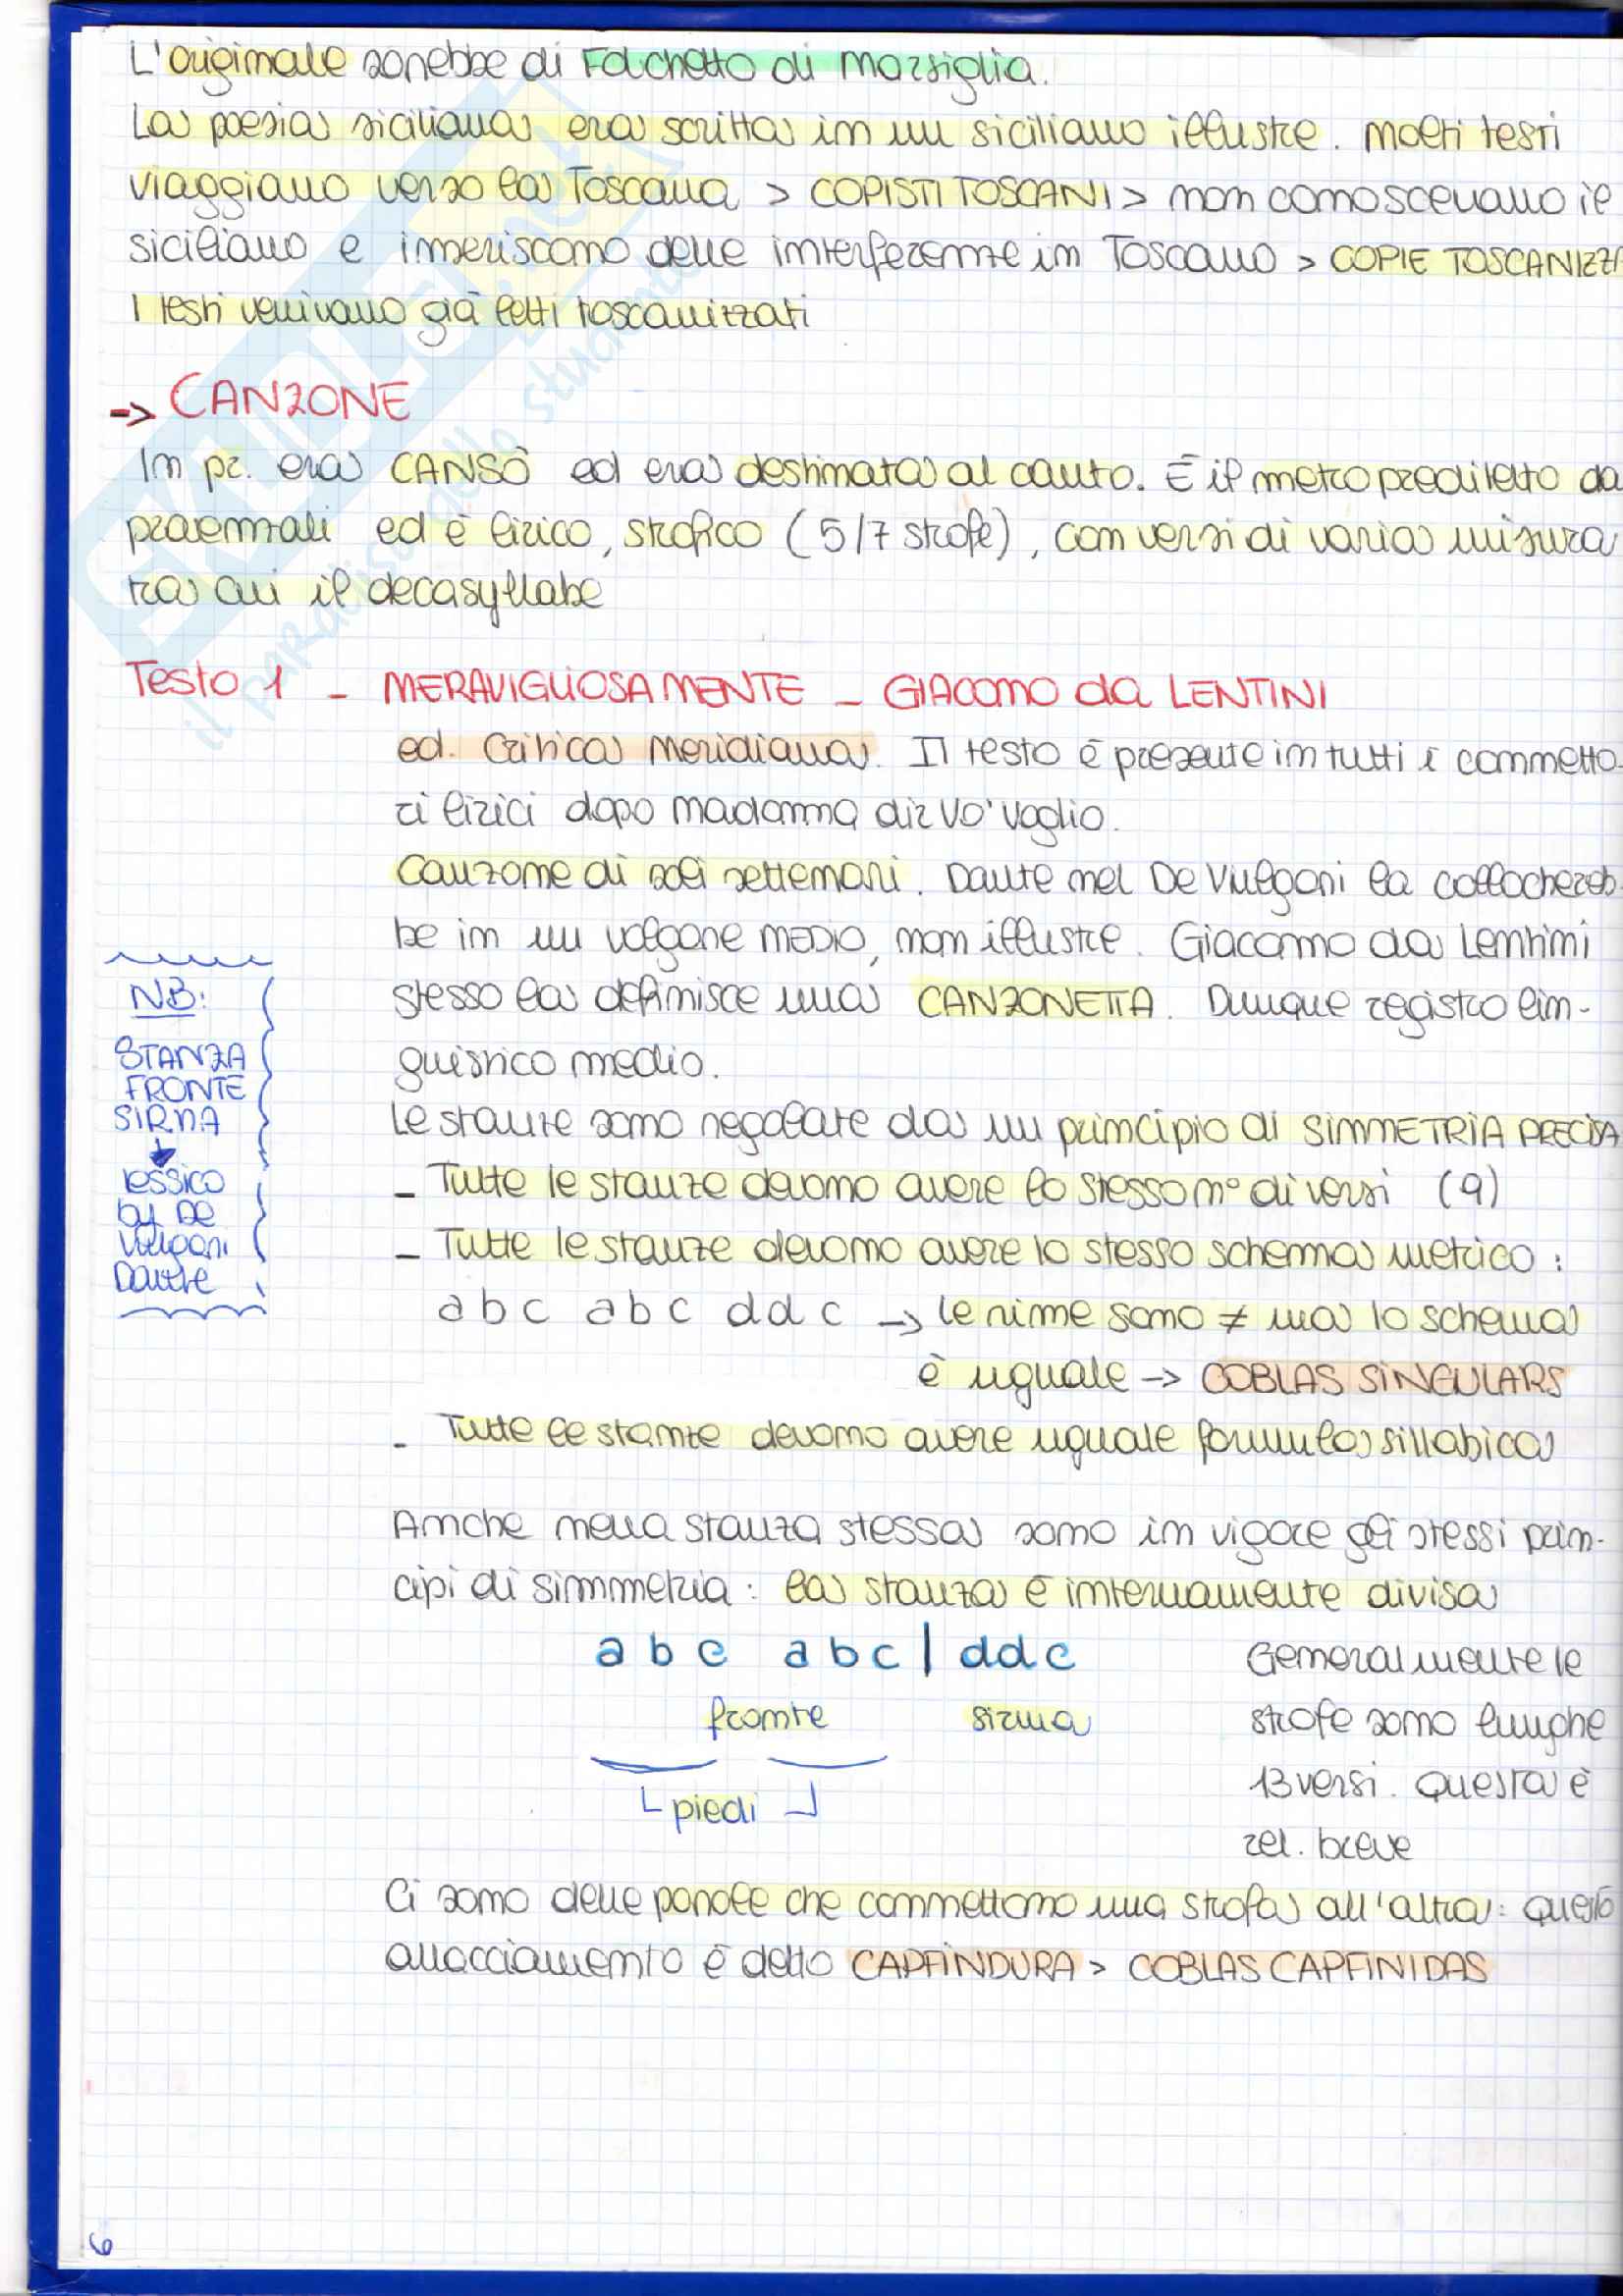 L'originale sarebbe di Folchetto di Marsiglia.
La poesia siciliana era scritta in un siciliano illustre. Molti testi
viaggiano verso la Toscana > COPISTI TOSCANI > non conoscevano il
siciliano e inseriscono delle interferenze in Toscano > COPIE TOSCANIZZ
I testi venivano già letti toscanizzati
-> CANZONE
In pr. era CANSÒ ed era destinata al canto. È il metro prediletto da
provenzali ed è lirico, strofico (5/7 strofe), con versi di varia misura
tra cui il decasyllabe
Testo 1 - MERAVIGLIOSAMENTE - GIACOMO da LENTINI
ed. critica Meridiana. Il testo è presente in tutti i connetto-
ri lirici dopo madonna dir vo' voglio.
Canzone di soli settenari. Dante nel De Vulgari la collochereb-
be in un volgare MEDIO, non illustre. Giacomo da Lentini
stesso la definisce una CANZONETTA. Dunque registro lin-
guistico medio.
NB:
STANZA
FRONTE
SIRMA
lessico
by De
Vulgari
Dante
Le stanze sono regolate da un principio di SIMMETRIA PRECISA
- Tutte le stanze devono avere lo stesso n° di versi (9)
- Tutte le stanze devono avere lo stesso schema metrico:
a b c a b c d d c -> le rime sono ≠ ma lo schema
è uguale -> COBLAS SINGULARS
- Tutte le stanze devono avere uguale formula sillabica
Anche nella stanza stessa sono in vigore gli stessi prin-
cipi di simmetria: la stanza è internamente divisa
a b c a b c | d d c
fronte sirma
piedi
Generalmente le
strofe sono lunghe
13 versi. Questa è
rel. breve
Ci sono delle parole che connettono una strofa all'altra: questo
allacciamento è detto CAPFINDURA > COBLAS CAPFINIDAS
6
SKUOLA.net
il paradiso dello studente